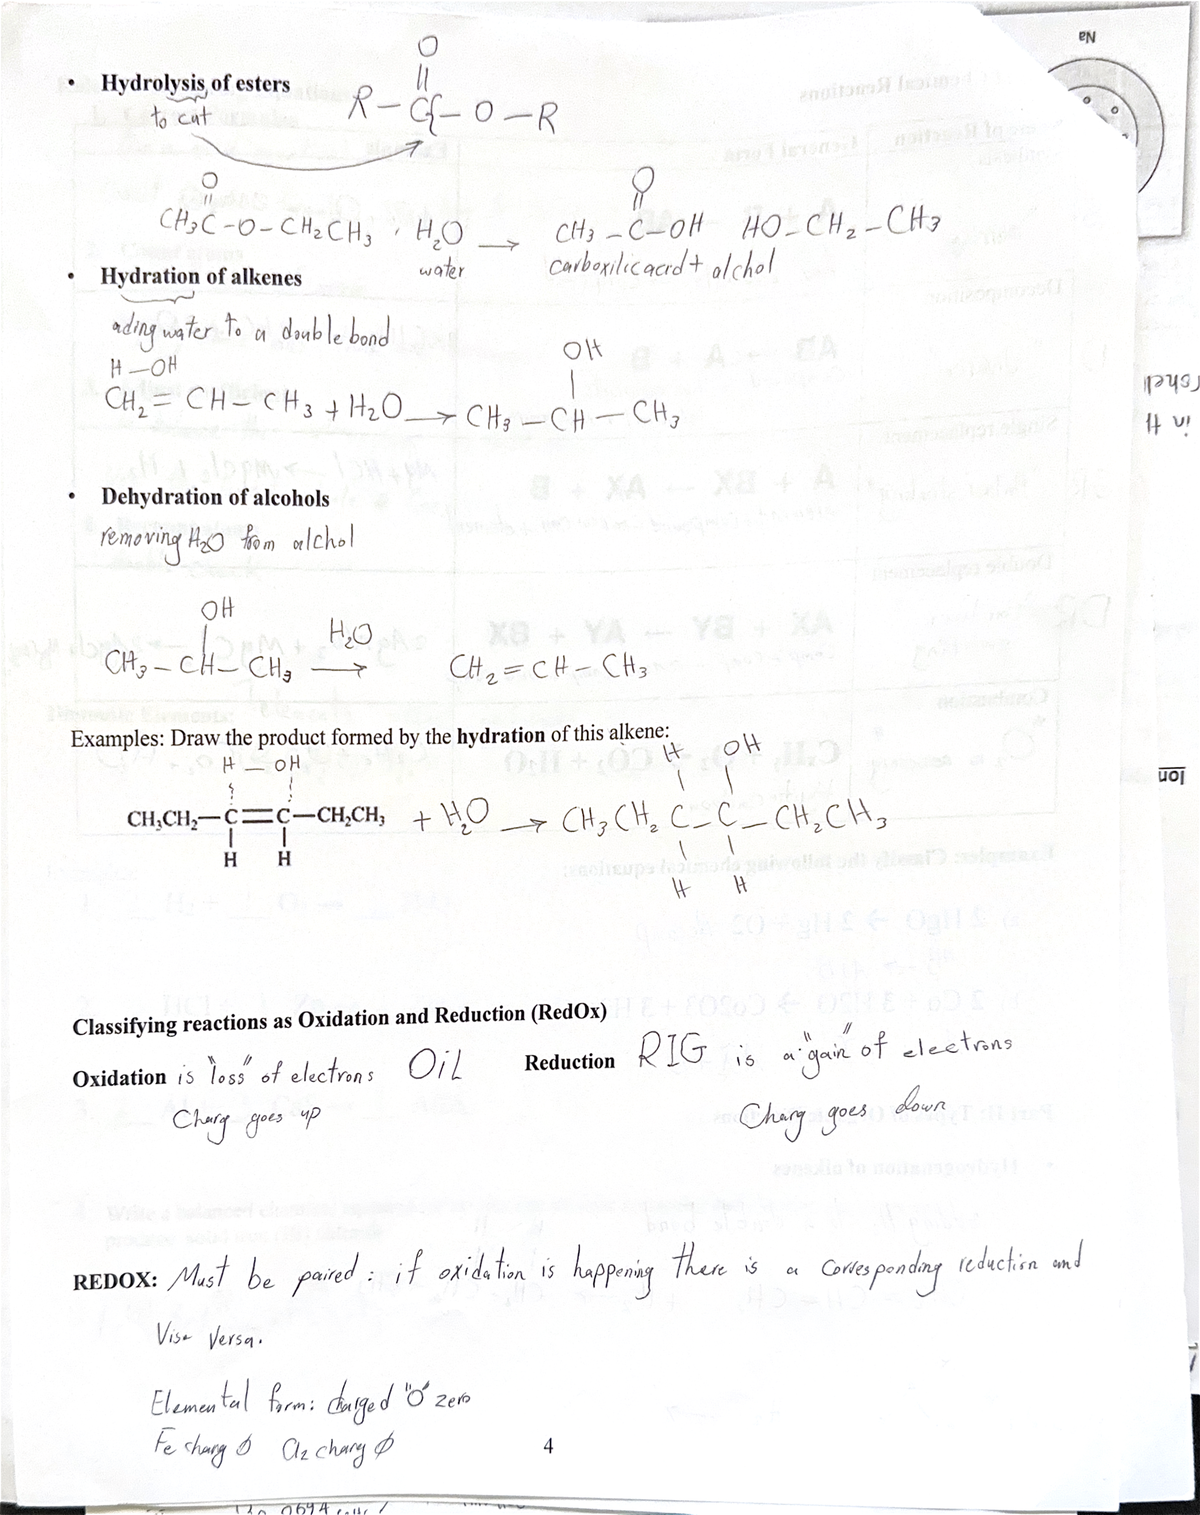 Na
• Hydrolysis of esters
to cut
O
R – C – O – R
O
CH3C – O – CH2CH3 H2O → CH3 – C – OH HO – CH2 – CH3
O
water carboxilic acid + alchol
• Hydration of alkenes
ading water to a double bond
H – OH
OH
CH2 = CH – CH3 + H2O → CH3 – CH – CH3
in 4
shell
• Dehydration of alcohols
removing H2O from alchol
OH
H2O
CH3 – CH – CH3 → CH2 = CH – CH3
Examples: Draw the product formed by the hydration of this alkene:
H – OH H OH
CH3CH2–C=C–CH2CH3 + H2O → CH3CH2 C – C – CH2CH3
H H H H
Ion
Classifying reactions as Oxidation and Reduction (RedOx)
Oxidation is "loss" of electrons OiL Reduction RIG is a "gain" of electrons
Charg goes up Charg goes down
REDOX: Must be paired: if oxidation is happening there is a corresponding reduction and
Vise Versa.
Elemental form: charged "0" zero
Fe charg 0 Cl2 charg 0
4